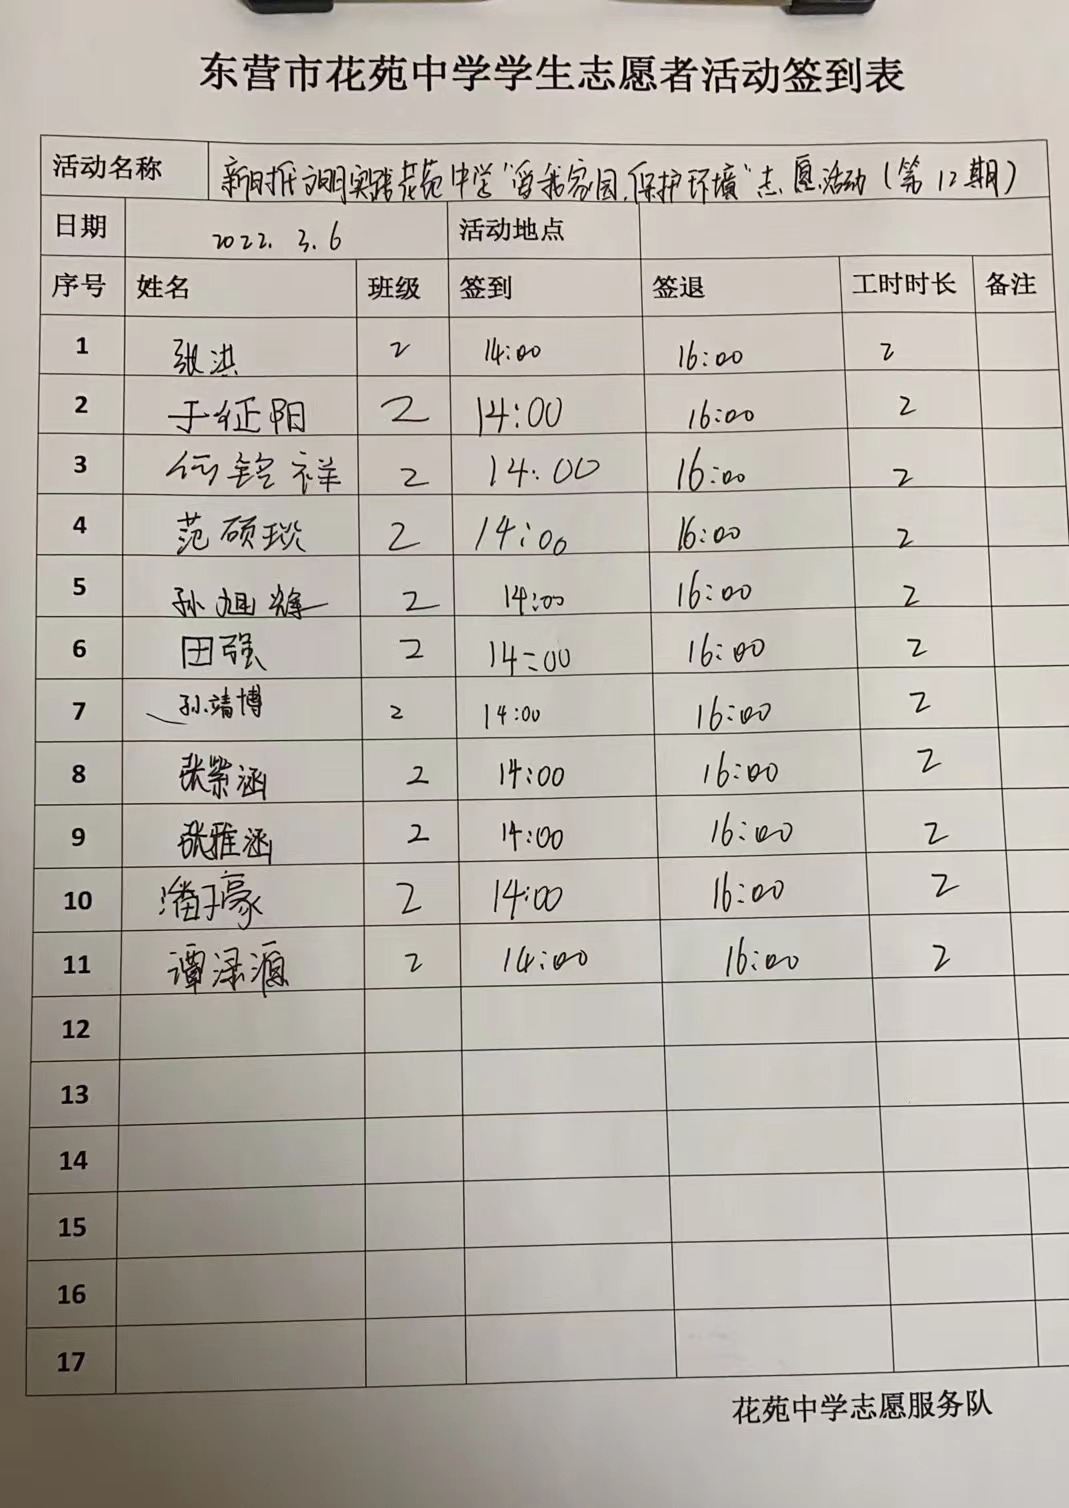 东营市花苑中学学生志愿者活动签到表
活动名称 新时代文明实践花苑中学"爱我家园,保护环境"志愿活动(第12期)
日期 2022.3.6 活动地点
序号 姓名 班级 签到 签退 工时时长 备注
1 张洪 2 14:00 16:00 2
2 于征阳 2 14:00 16:00 2
3 铭祥 2 14:00 16:00 2
4 范硕琰 2 14:00 16:00 2
5 孙旭辉 2 14:00 16:00 2
6 田强 2 14:00 16:00 2
7 孙靖博 2 14:00 16:00 2
8 张紫涵 2 14:00 16:00 2
9 张雅涵 2 14:00 16:00 2
10 潘子豪 2 14:00 16:00 2
11 谭渌源 2 14:00 16:00 2
12
13
14
15
16
17
花苑中学志愿服务队